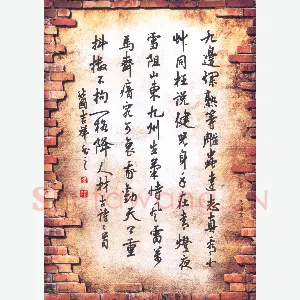 九邊爛熟等雕虫遠志真看小
艸同枉說健兒身手在青燈夜
雪阻山東九州生氣恃風雷萬
馬齊瘖究可哀我勸天公重
抖擻不拘一格降人材古詩二首